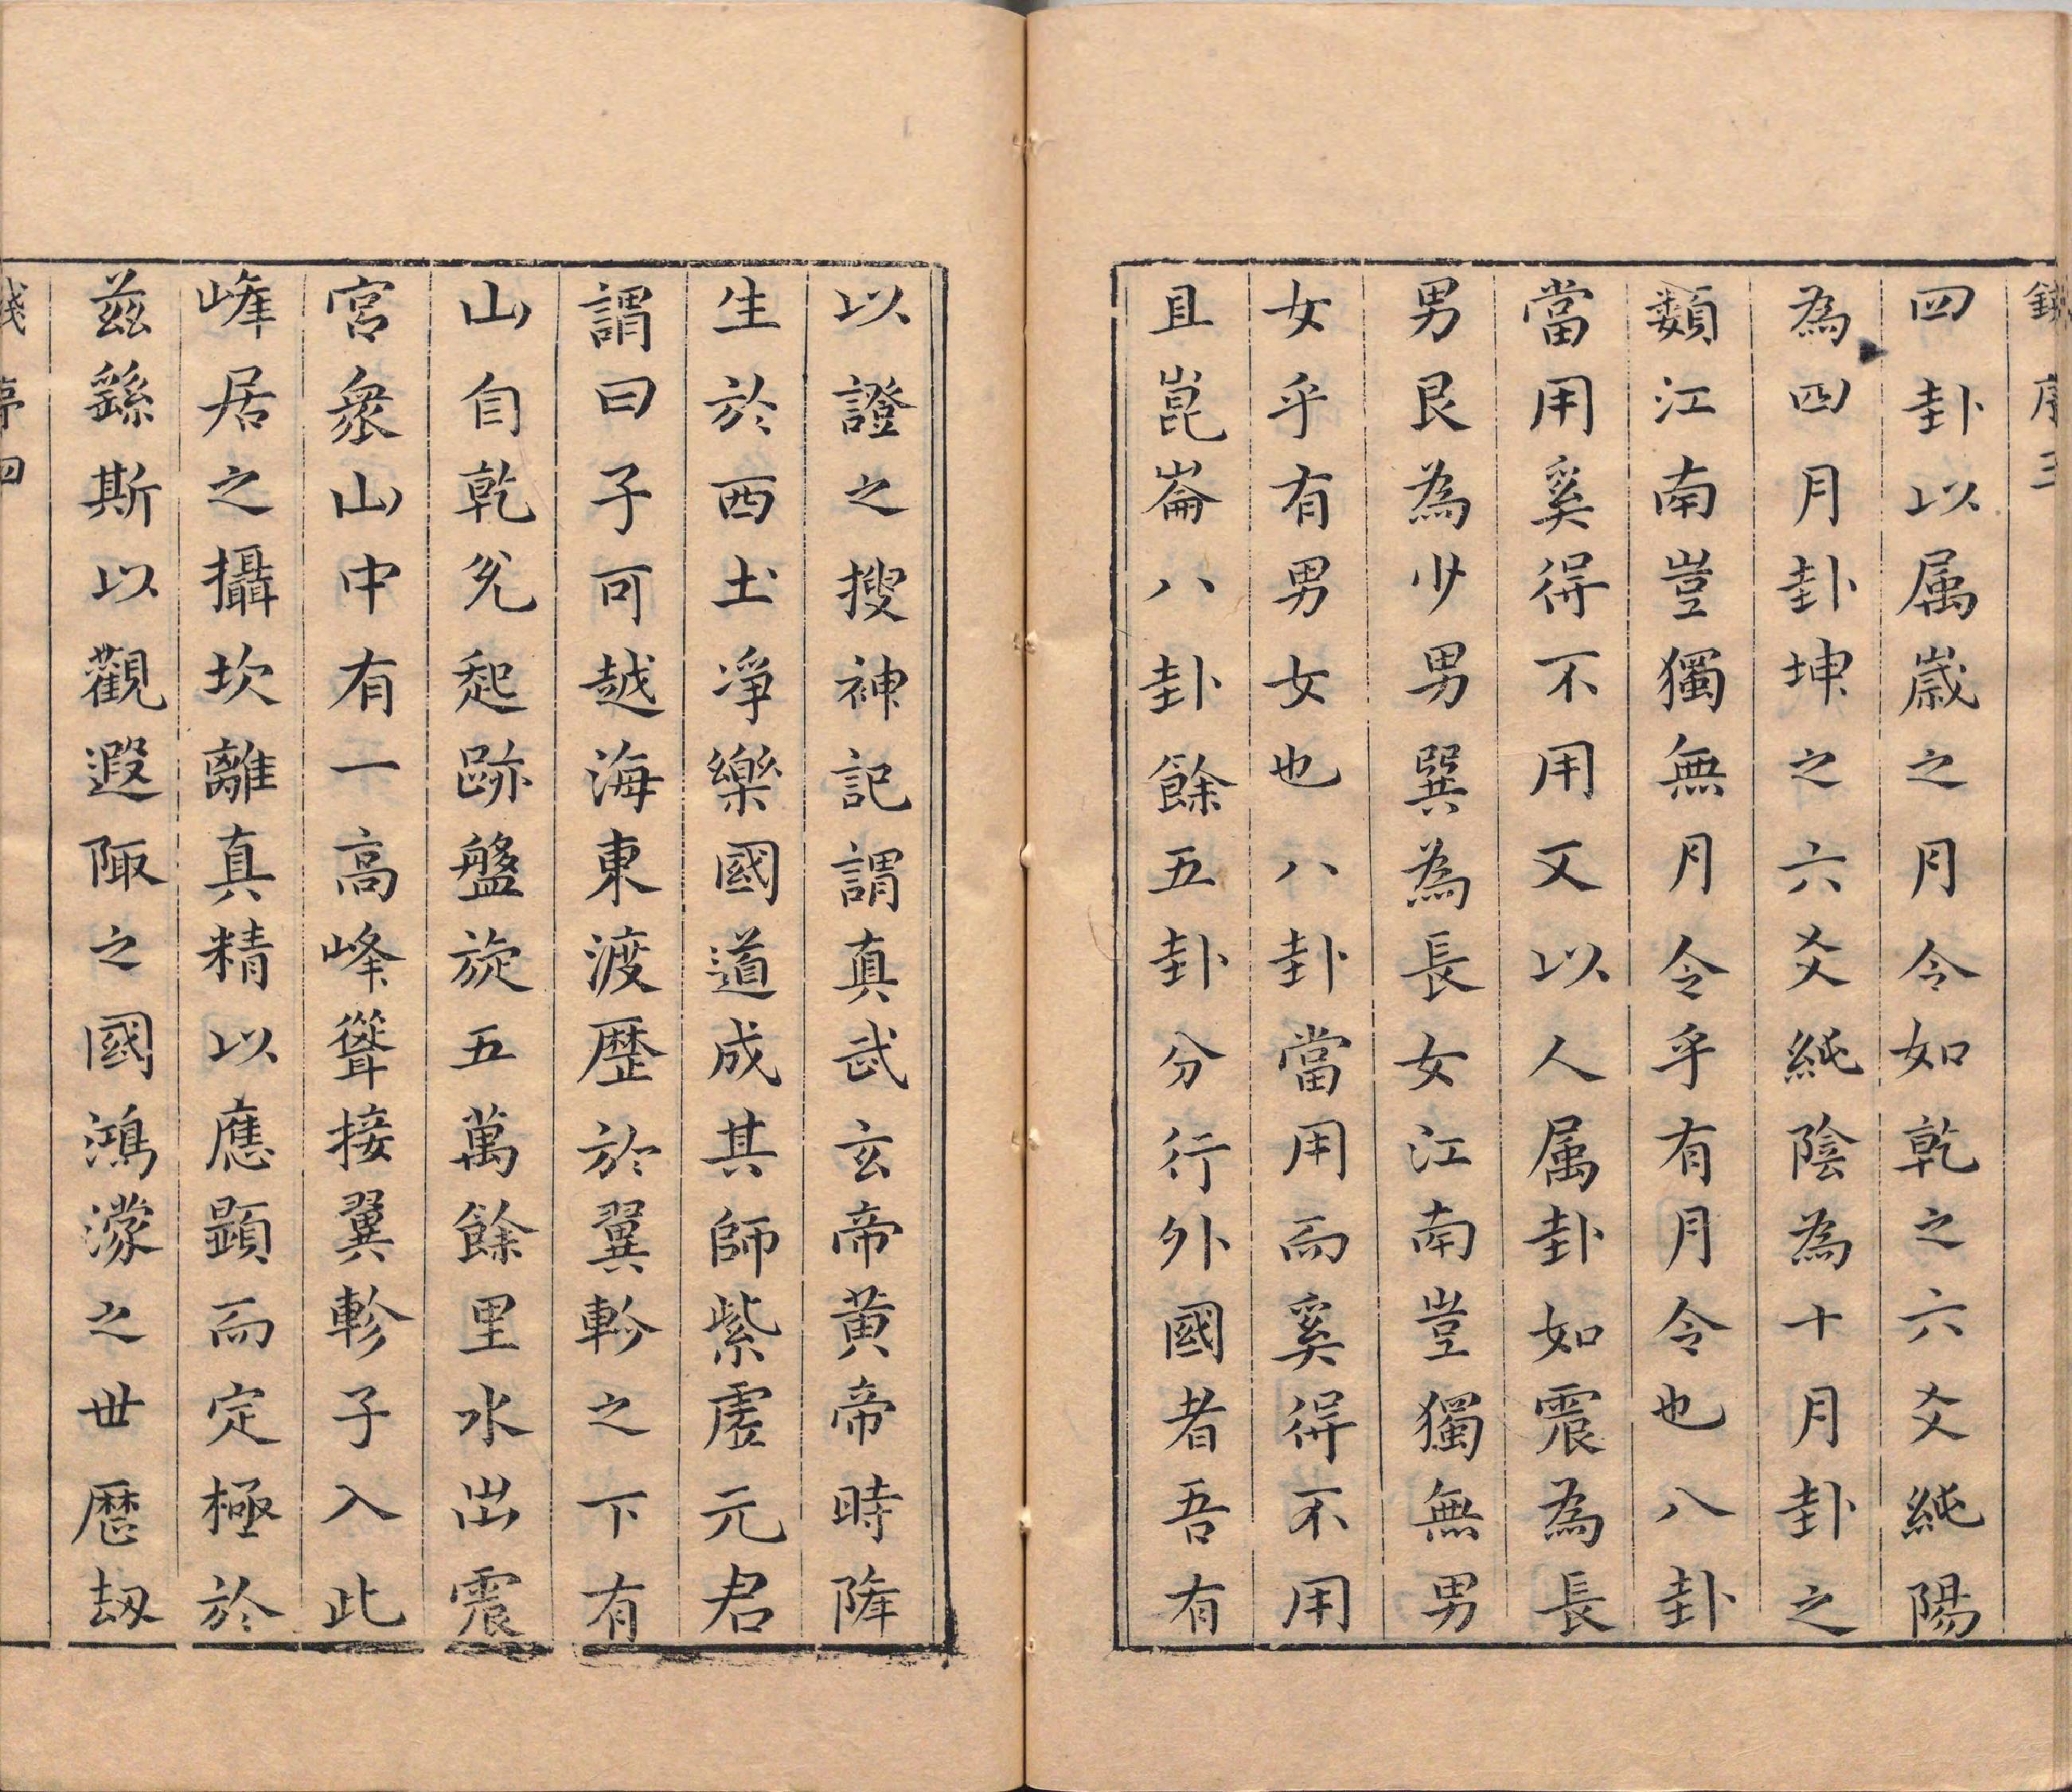 序三
四卦以属嵗之月令如乾之六爻純陽
為四月卦坤之六爻純陰為十月卦之
類江南豈獨無月令乎有月令也八卦
當用奚得不用又以人属卦如震為長
男艮為少男巽為長女江南豈獨無男
女乎有男女也八卦當用而奚得不用
且崑崙八卦餘五卦分行外國者吾有
以證之搜神記謂真武玄帝黄帝時降
生於西土淨樂國道成其師紫虛元君
謂曰子可越海東渡歷於翼軫之下有
山自乾兊起跡盤旋五萬餘里水出震
宮衆山中有一高峰聳接翼軫子入此
峰居之攝坎離真精以應顕而定極於
茲繇斯以觀遐陬之國鴻濛之世歷劫
四